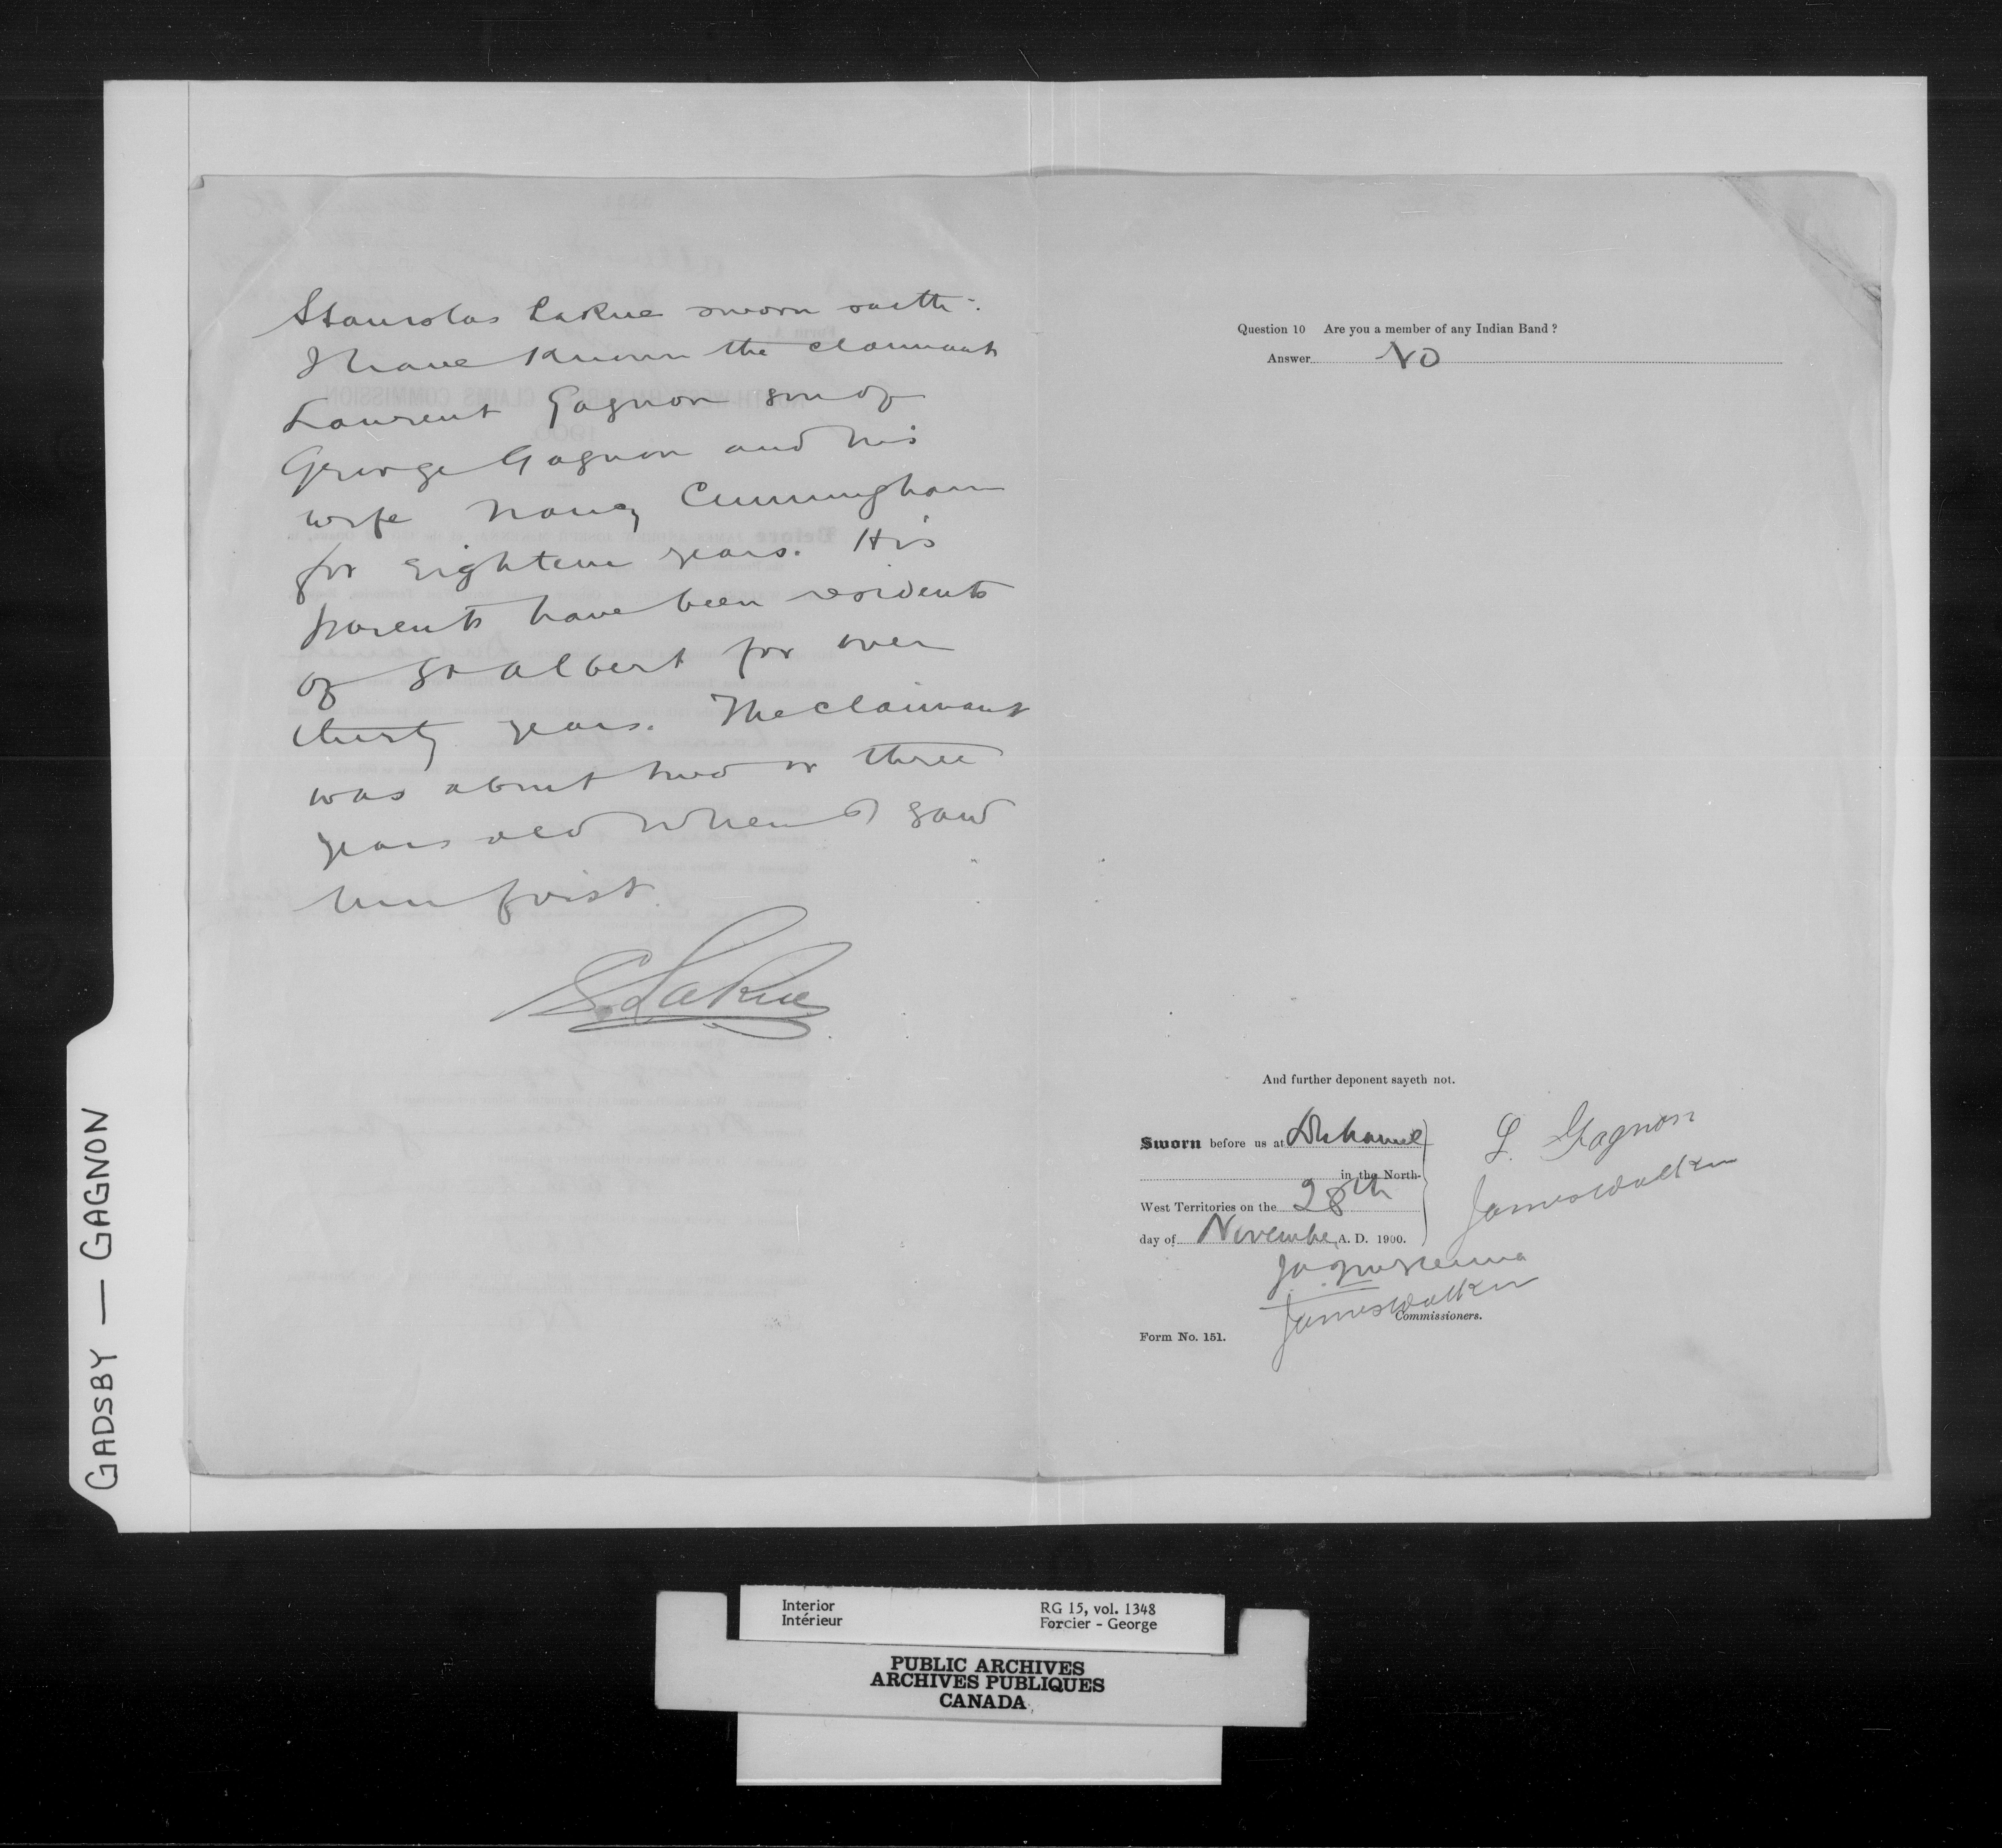 Stanislas LaRue sworn saith:
I have known the claimant
Laurent Gagnon son of
George Gagnon and his
wife Nancy Cunningham
for eighteen years. His
parents have been residents
of St Albert for over
thirty years. The claimant
was about two or three
years old when I saw
him first.
S. LaRue
Question 10 Are you a member of any Indian Band ?
Answer No
And further deponent sayeth not.
Sworn before us at Duhamel
in the North-
West Territories on the 28th
day of November A. D. 1900.
L. Gagnon
James Walker
James Walker
Commissioners.
Form No. 151.
GADSBY — GAGNON
Interior RG 15, vol. 1348
Intérieur Forcier - George
PUBLIC ARCHIVES
ARCHIVES PUBLIQUES
CANADA